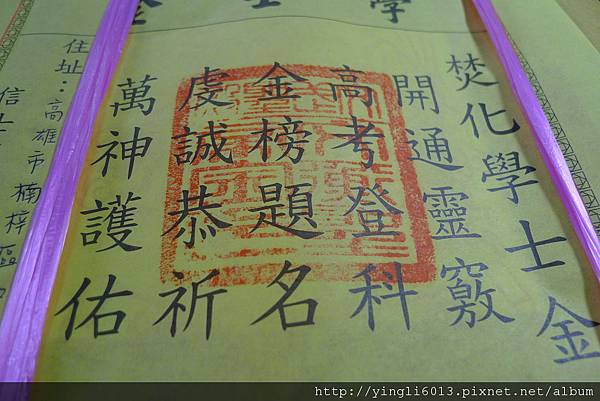 焚化學士金
開通靈竅
高考登科
金榜題名
虔誠恭祈
萬神護佑
住址：高雄市楠梓區
信士
http://yingli6013.pixnet.net/album